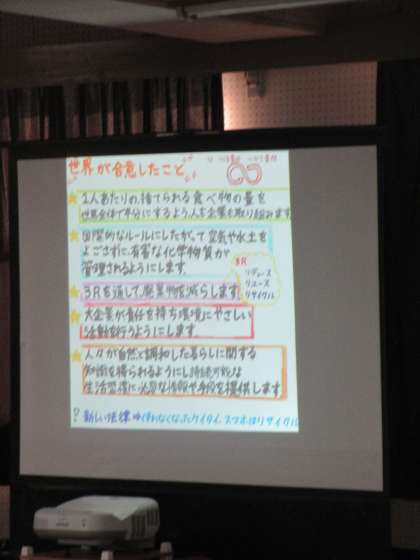 世界が合意したこと
12 つくる責任 つかう責任
★1人あたりの捨てられる食べ物の量を
世界全体で半分にするよう人も企業も取り組みます
★国際的なルールにしたがって空気や水土を
よごさずに、有害な化学物質が
管理されるようにします。
3R
リデュース
リユース
リサイクル
★3Rを通して廃棄物を減らします
★大企業が責任を持ち環境にやさしい
活動を行うようにします。
★人々が自然と調和した暮らしに関する
知識を得られるようにし持続可能な
生活習慣に必要な情報や手段を提供します
? 新しい法律⇒くなったケイタイ、スマホはリサイクル